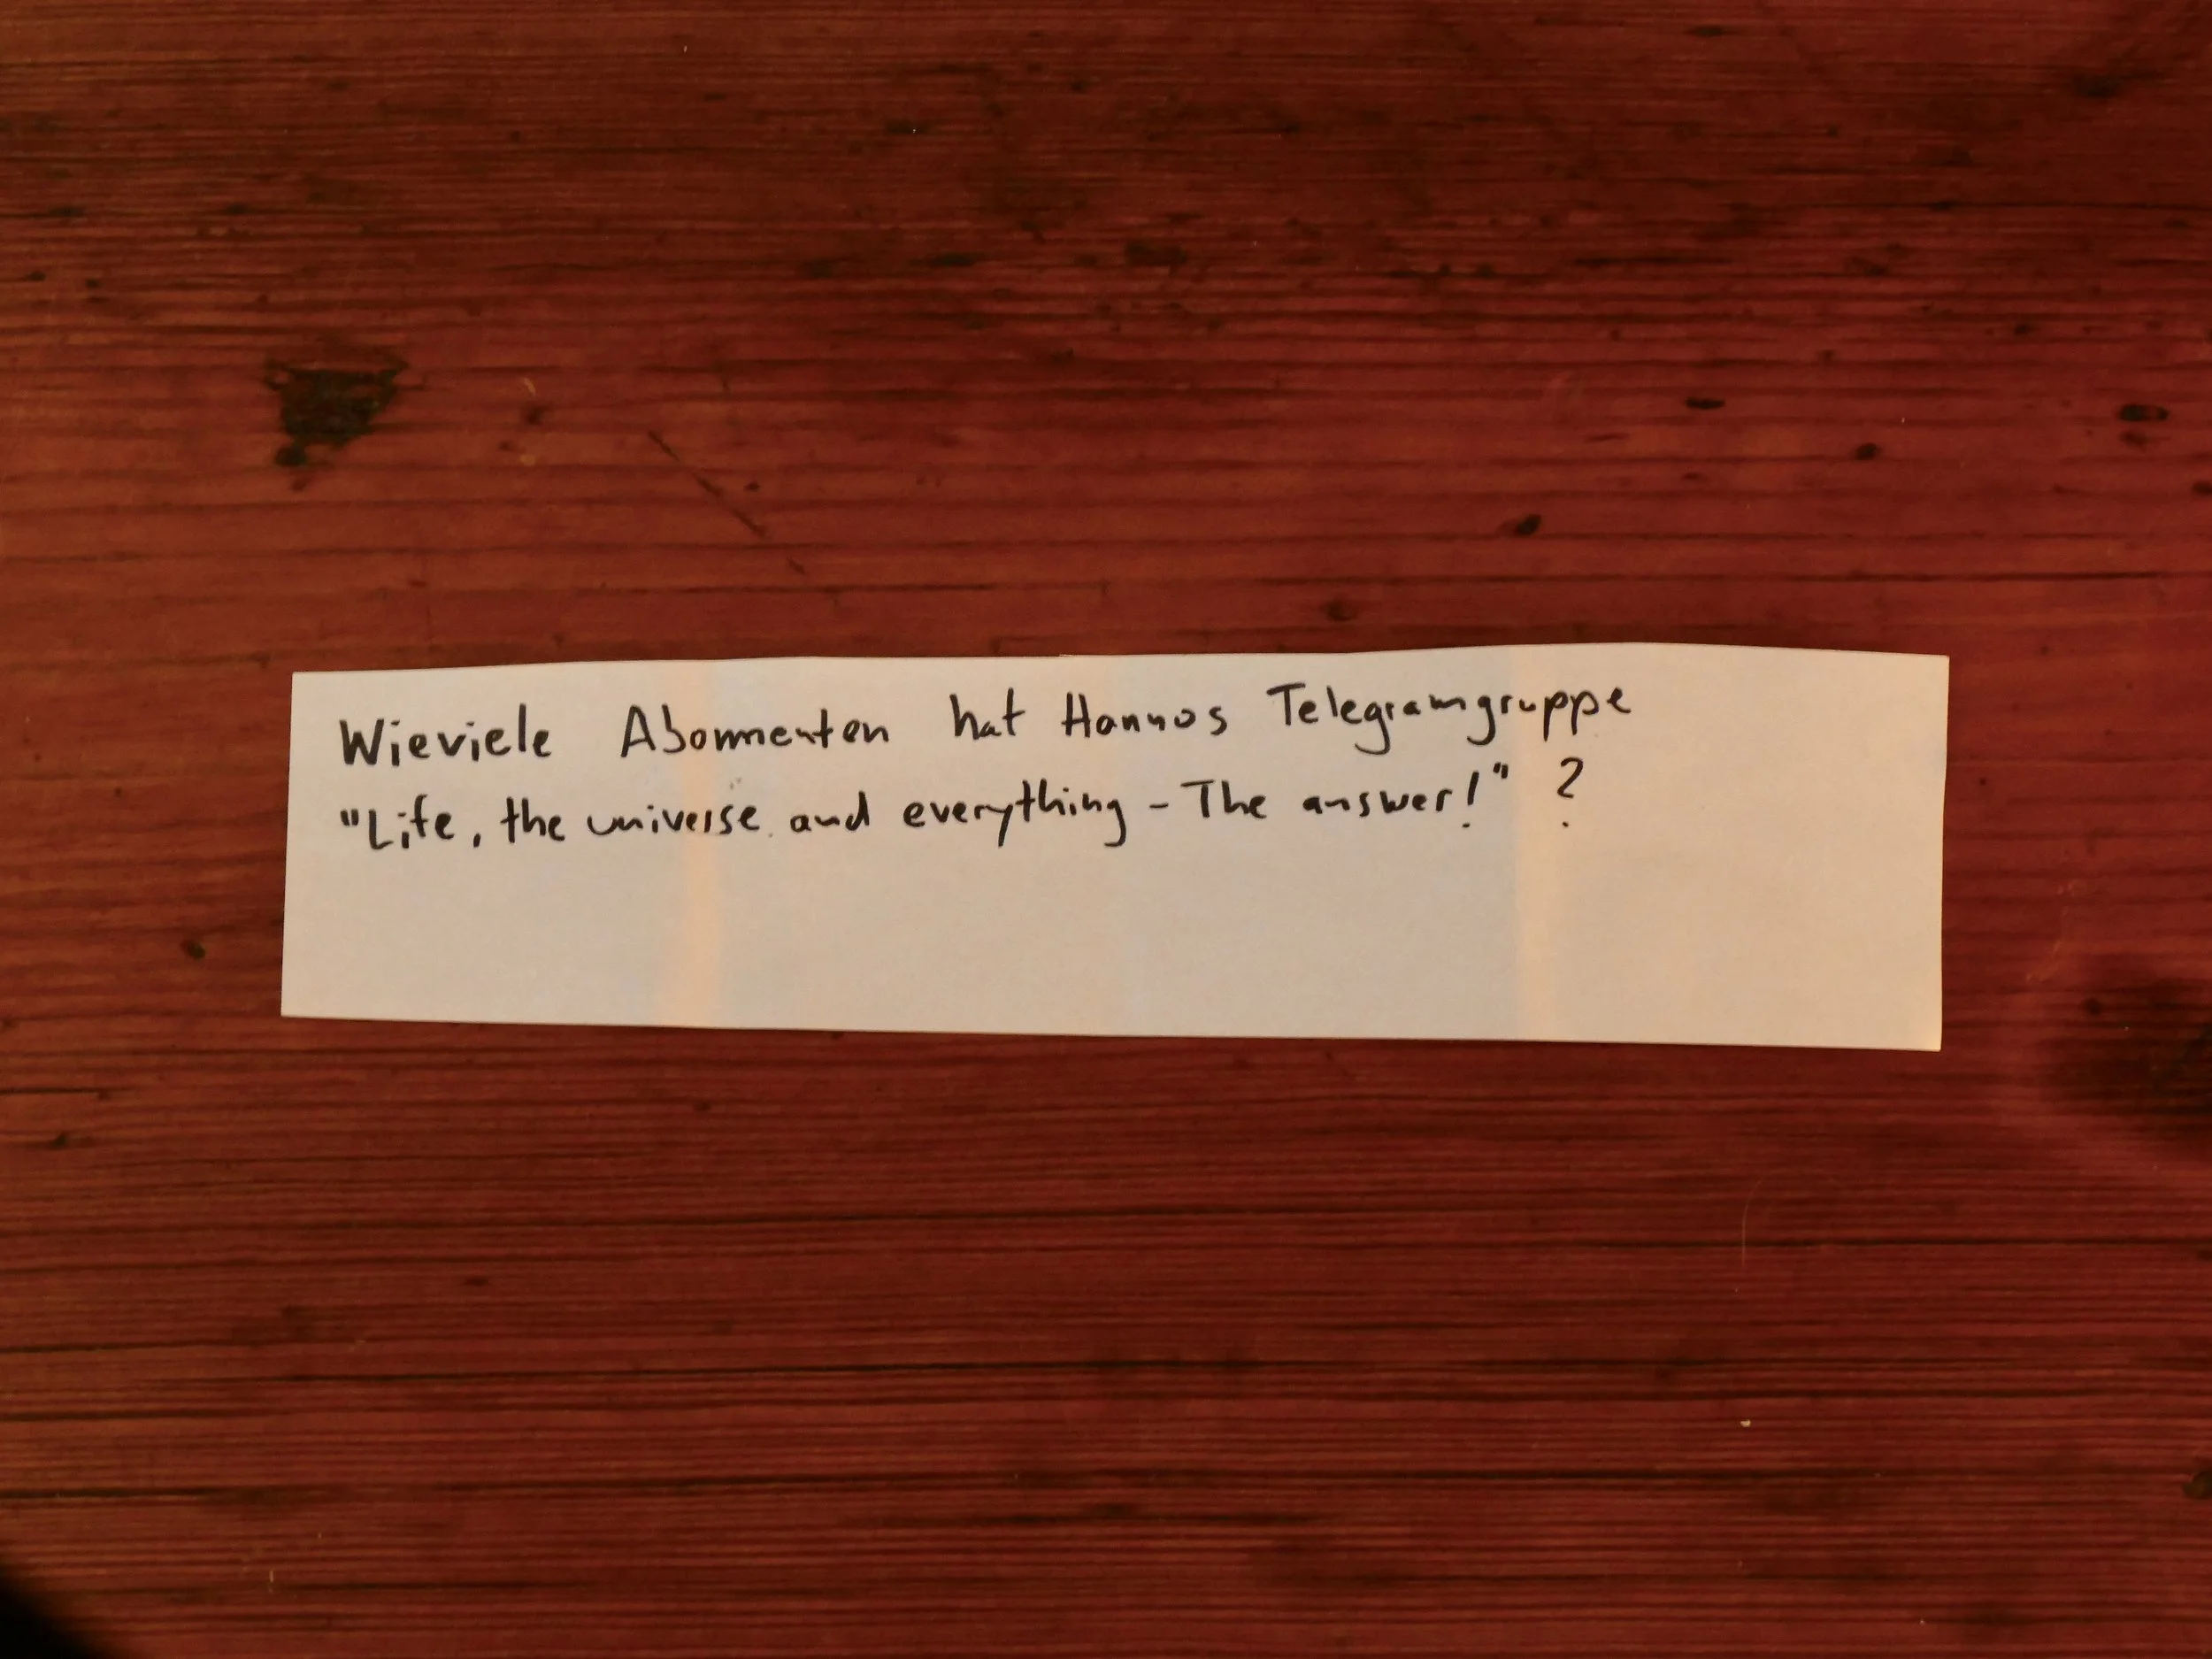 Wieviele Abonnenten hat Hannos Telegramgruppe
"Life, the universe and everything - The answer!" ?